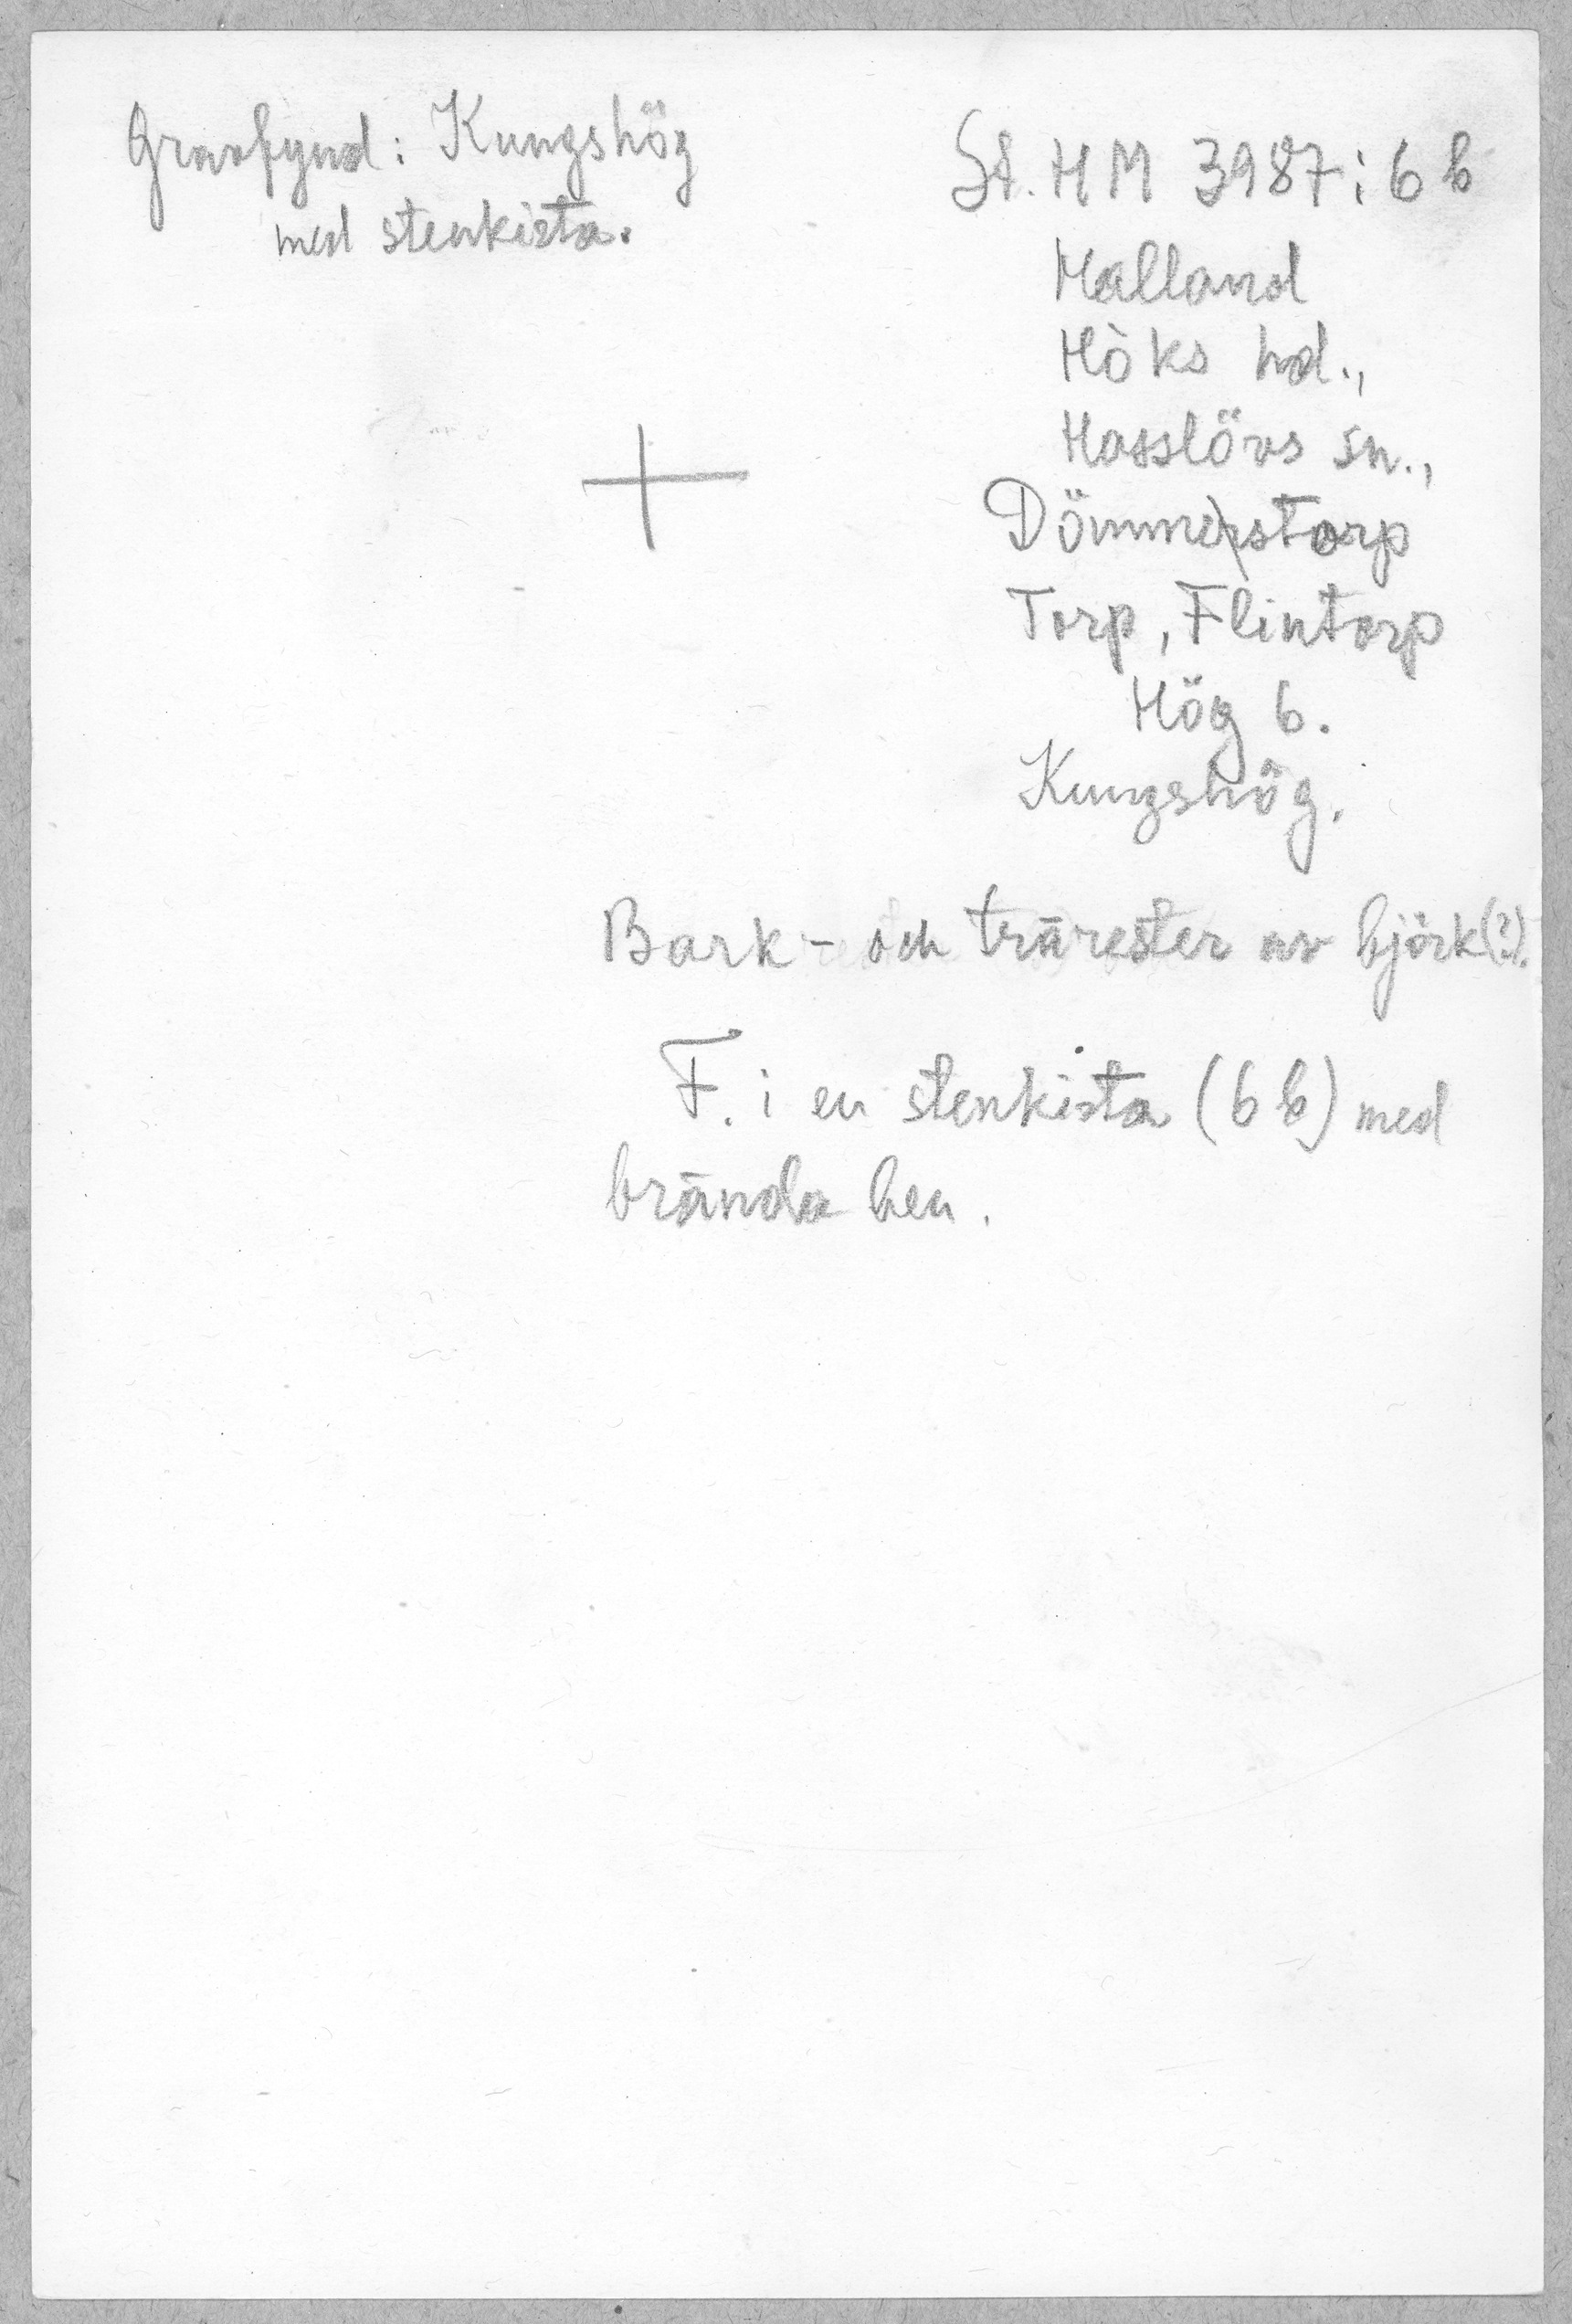 Gravfynd: Kungshög
med stenkista.
St. H M 3987:6 b
Halland
Höks hd.,
Hasslövs sn.,
Dömmestorp
Torp, Flintorp
Hög 6.
Kungshög.
Bark- och trärester av björk(?).
F. i en stenkista (6 b) med
brända ben.